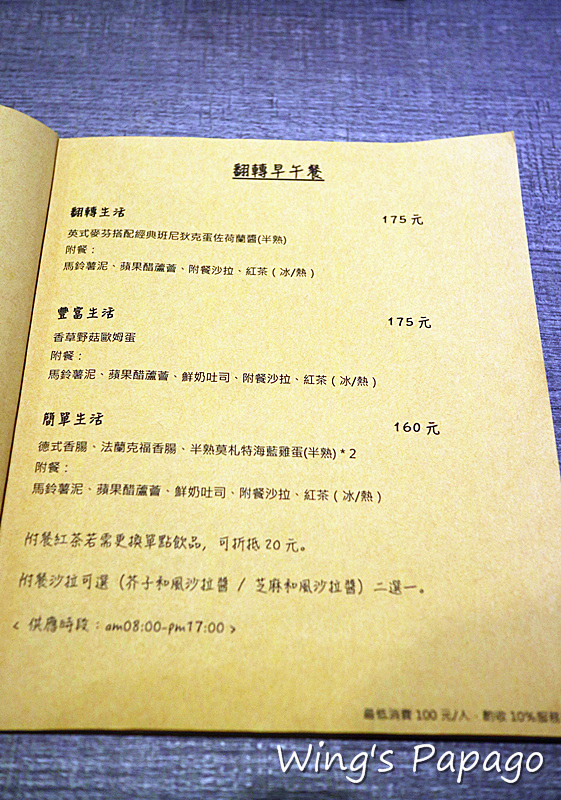 翻轉早午餐
翻轉生活 175元
英式麥芬搭配經典班尼狄克蛋佐荷蘭醬(半熟)
附餐：
馬鈴薯泥、蘋果醋蘆薈、附餐沙拉、紅茶（冰/熱）
豐富生活 175元
香草野菇歐姆蛋
附餐：
馬鈴薯泥、蘋果醋蘆薈、鮮奶吐司、附餐沙拉、紅茶（冰/熱）
簡單生活 160元
德式香腸、法蘭克福香腸、半熟莫札特海藍雞蛋(半熟) * 2
附餐：
馬鈴薯泥、蘋果醋蘆薈、鮮奶吐司、附餐沙拉、紅茶（冰/熱）
附餐紅茶若需更換單點飲品，可折抵20元。
附餐沙拉可選（芥子和風沙拉醬 / 芝麻和風沙拉醬）二選一。
< 供應時段：am08:00-pm17:00 >
最低消費 100 元/人．酌收 10%服務
Wing's Papago